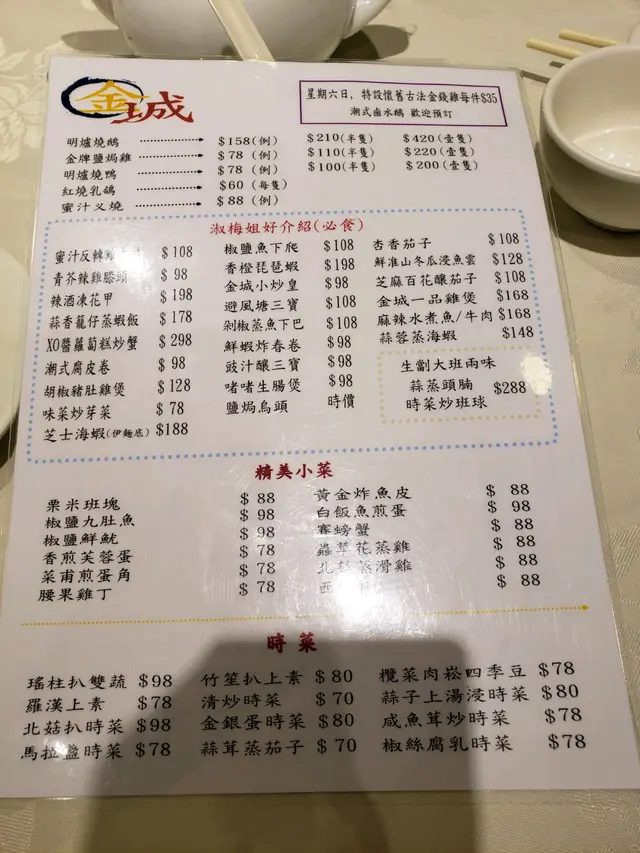 金城
星期六日，特設懷舊古法金錢雞每件$35
潮式鹵水鵝 歡迎預訂
明爐燒鵝 $158(例) $210(半隻) $420(壹隻)
金牌鹽焗雞 $78(例) $110(半隻) $220(壹隻)
明爐燒鴨 $78(例) $100(半隻) $200(壹隻)
紅燒乳鴿 $60(每隻)
蜜汁叉燒 $88(例)
淑梅姐好介紹(必食)
蜜汁反轉 $108
青芥辣雞膝頭 $98
辣酒凍花甲 $198
蒜香籠仔蒸蝦飯 $178
XO醬蘿蔔糕炒蟹 $298
潮式腐皮卷 $98
胡椒豬肚雞煲 $128
味菜炒芽菜 $78
芝士海蝦(伊麵底) $188
椒鹽魚下爬 $108
香橙琵琶蝦 $198
金城小炒皇 $98
避風塘三寶 $108
剁椒蒸魚下巴 $108
鮮蝦炸春卷 $98
豉汁釀三寶 $98
啫啫生腸煲 $98
鹽焗烏頭 時價
杏香茄子 $108
鮮淮山冬瓜浸魚雲 $128
芝麻百花釀茄子 $108
金城一品雞煲 $168
麻辣水煮魚/牛肉 $168
蒜蓉蒸海蝦 $148
生劏大班兩味
蒜蒸頭腩
時菜炒班球
$288
精美小菜
粟米班塊 $88
椒鹽九肚魚 $98
椒鹽鮮魷 $98
香煎芙蓉蛋 $78
菜甫煎蛋角 $78
腰果雞丁 $78
黃金炸魚皮 $88
白飯魚煎蛋 $98
賽螃蟹 $88
蟲草花蒸雞 $88
北菇蒸滑雞 $88
西 $88
時菜
瑤柱扒雙蔬 $98
羅漢上素 $78
北菇扒時菜 $98
馬拉盞時菜 $78
竹笙扒上素 $80
清炒時菜 $70
金銀蛋時菜 $80
蒜茸蒸茄子 $70
欖菜肉崧四季豆 $78
蒜子上湯浸時菜 $80
咸魚茸炒時菜 $78
椒絲腐乳時菜 $78